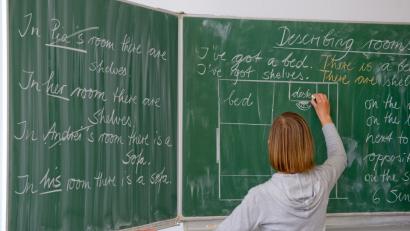 In Pia's room there are
shelves.
In her room there are
shelves.
In Andrei's room there is a
sofa.
In his room there is a sofa.
Describing room
I've got a bed. There is a be
I've got shelves. There are shel
bed
desk
on the
on the l
next to
opposit
on the
6 Sen